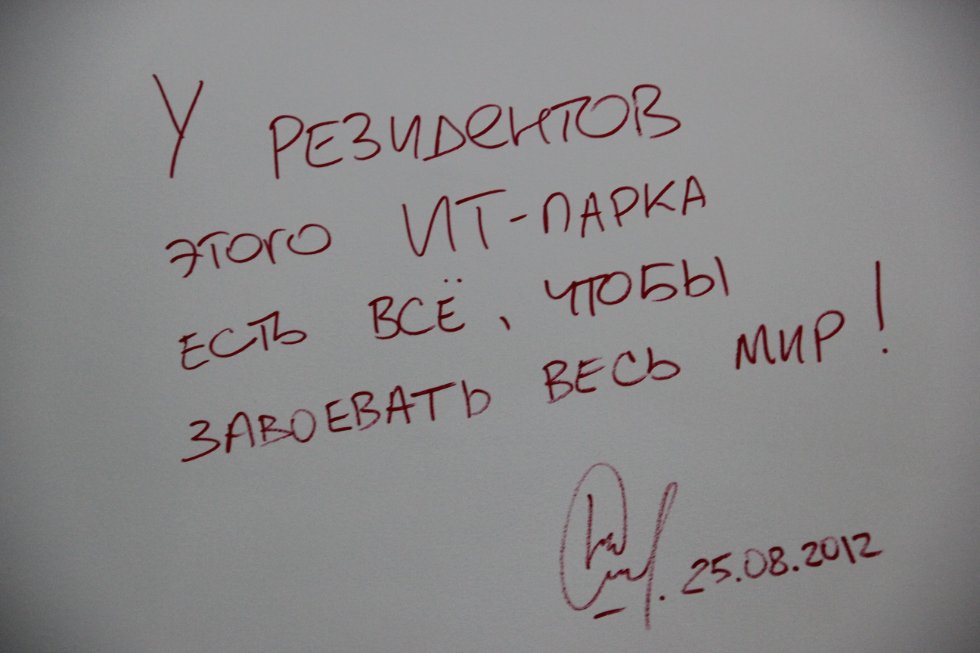 У РЕЗИДЕНТОВ
ЭТОГО ИТ-ПАРКА
ЕСТЬ ВСЁ, ЧТОБЫ
ЗАВОЕВАТЬ ВЕСЬ МИР!
25.08.2012